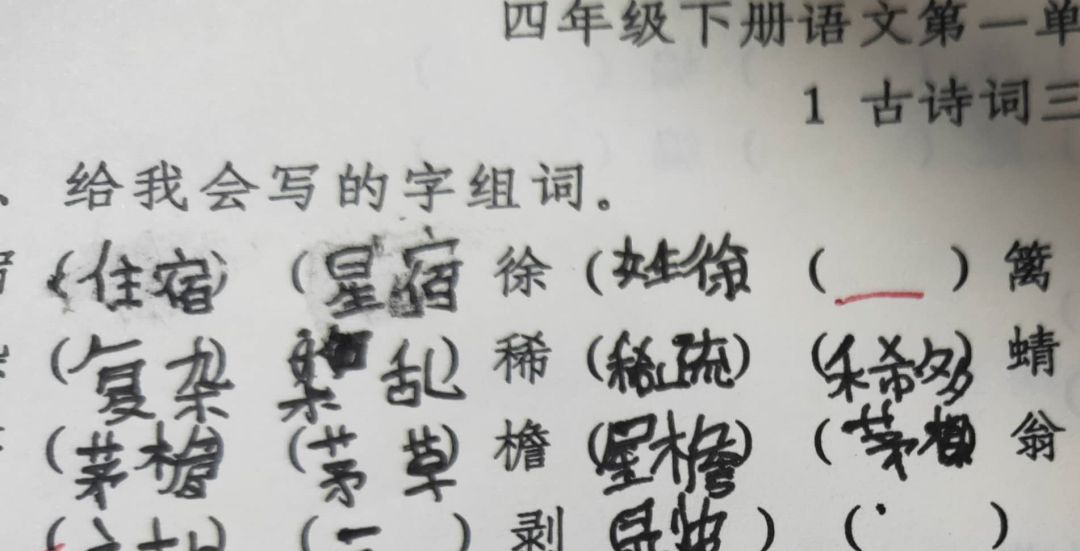 四年级下册语文第一单
1 古诗词三
、给我会写的字组词。
(住宿) (星宿) 徐(姓徐) ( ) 篱
(复杂) 杂乱) 稀(稀疏) (稀多) 蜻
(茅檐) (茅草) 檐(屋檐) (茅 翁
( ( ) 剥 ) ( )